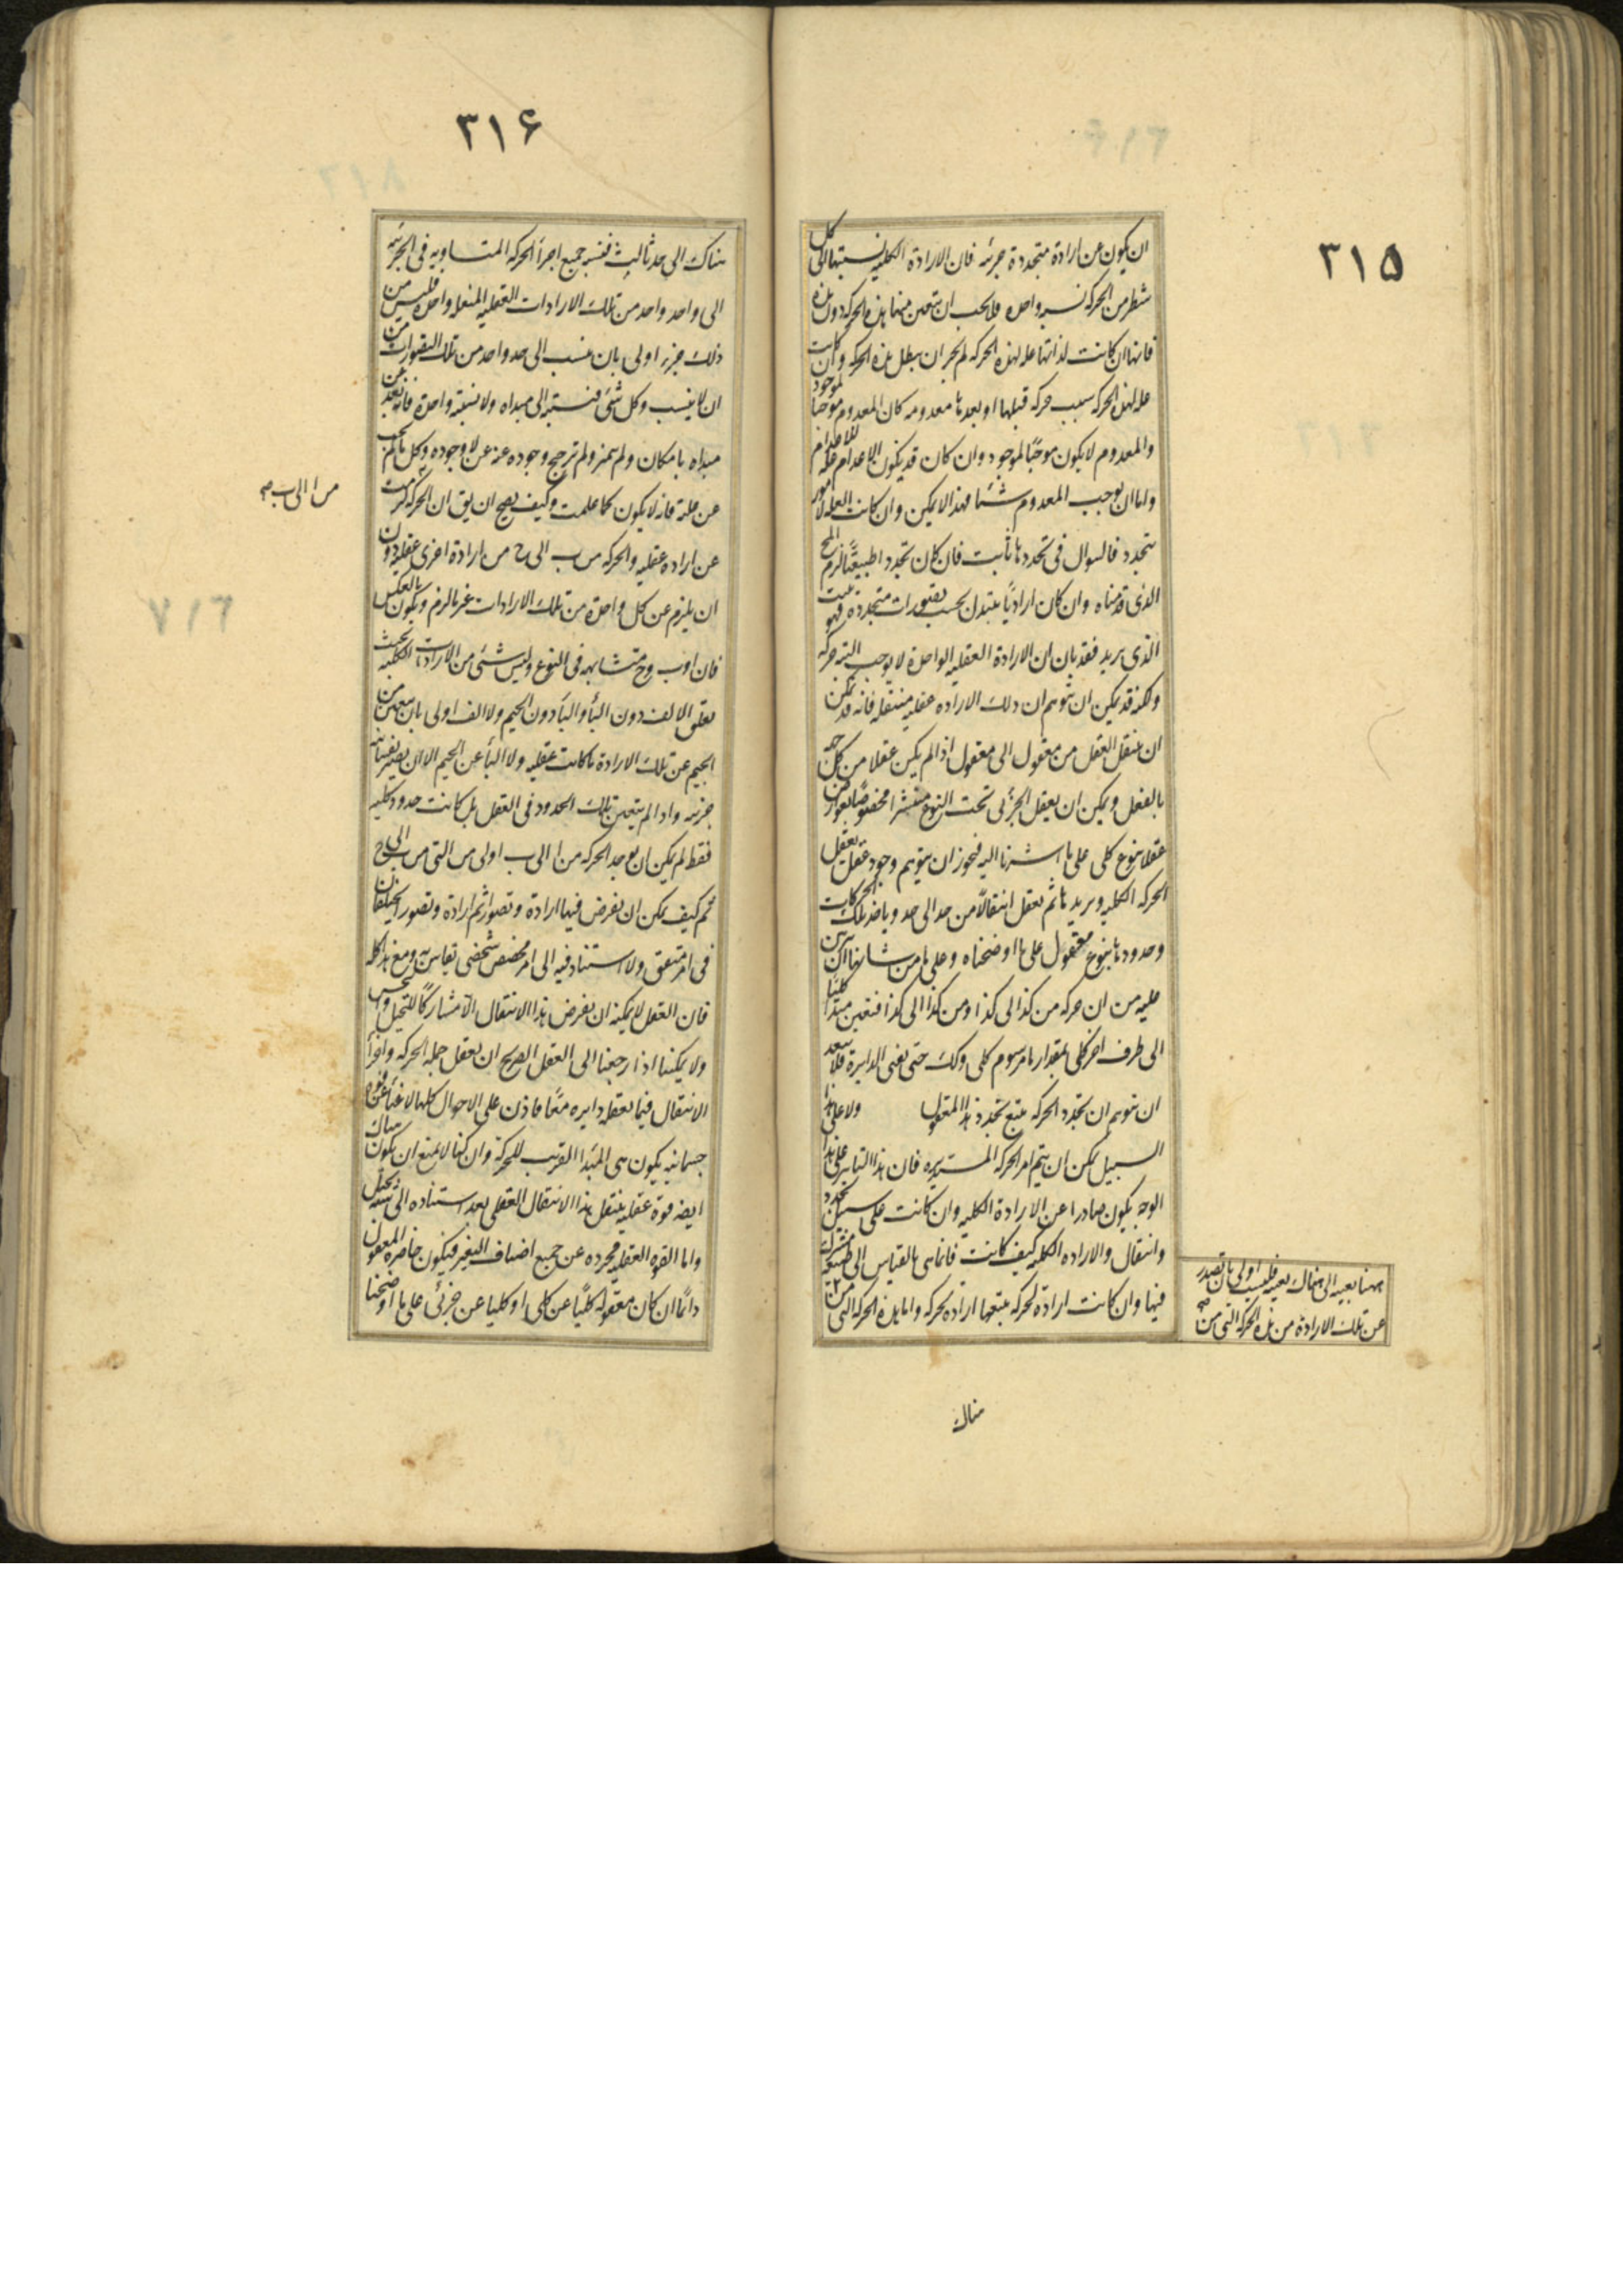 ۳۱۵
ان يكون عن ارادة متجددة جزئيه فان الارادة الكليه نسبتها الى كل
شطر من الحركه نسبه واحده فلا يجب ان يتعين منها هذه الحركه دون هذه
فانها ان كانت لذاتها عله لهذه الحركه لم يجز ان يبطل هذه الحركه وان كانت
عله لهذه الحركه بسبب حركه قبلها او بعدها معدومه كان المعدوم موجبا لموجود
والمعدوم لا يكون موجبًا لموجود وان كان قد يكون الاعدام عله للاعدام
واما ان يوجب المعدوم شيئا فهذا لا يمكن وان كانت العله لامور
تتجدد فالسوال فى تجددها ثابت فان كان تجددا طبيعيًا لزم المح
الذى قدمناه وان كان اراديًا يتبدل بحسب تصورات متجددة فهو
الذى يريد فقد بان ان الارادة العقليه الواحدة لا يوجب البته حركه
ولكنه قد يمكن ان يتوهم ان ذلك الاراده عقليه منتقله فانه قد يمكن
ان ينتقل العقل من معقول الى معقول اذا لم يكن عقلا من كل جهه
بالفعل ويمكن ان يعقل الجزئى تحت النوع منتشرا مخصوصًا بعوارض
عقلا بنوع كلى على ما اشرنا اليه فيجوز ان يتوهم وجود عقل يعقل
الحركه الكليه ويريدها ثم يعقل انتقالًا من حد الى حد وياخذ تلك الحركات
وحدودها بنوع معقول على ما اوضحناه وعلى ما من شاننا ان نبرهن
عليه من ان حركه من كذا الى كذا ومن كذا الى كذا فتعين مبدا كليًا
الى طرف اخر كلى بمقدار ما مرسوم كلى وكك حتى يفنى الدايرة فلا يبعد
ان يتوهم ان تجدد الحركه يتبع تجدد هذا المعقول ولا على هذا
السبيل يمكن ان يتم امر الحركه المستديره فان هذا التاثير على هذا
الوجه يكون صادرا عن الارادة الكليه وان كانت على سبيل تجدد
وانتقال والاراده الكليه كيف كانت فانما هى بالقياس الى طبيعه مشترك
فيها وان كانت ارادة لحركه يتبعها ارادة لحركه واما هذه الحركه التى من
ههنا بعينه الى هناك بعينه فليست اولى بان تصدر
عن تلك الارادة من هذه الحركه التى من صح
هناك
۳۱۶
هناك الى حد ثالث فنسبه جميع اجزاء الحركه المتساويه فى الجزئيه
الى واحد واحد من تلك الارادات العقليه المنتقله واحده فليس من
ذلك جزء اولى بان ينسب الى حد واحد من تلك التصورات من
ان لا ينسب وكل شئ فنسبته الى مبداه ولا نسبته واحدة فانه بعد عن
مبداه بامكان ولم يتميز ولم يترجح وجوده عنه عن لا وجوده وكل ما لم يجب
عن علته فانه لا يكون كما علمت وكيف يصح ان يق ان الحركه لزمت
من ا الى ب صح
عن اراده عقليه والحركه من ب الى ح من ارادة اخرى عقليه دون
ان يلزم عن كل واحدة من تلك الارادات غير ما لزم ويكون بالعكس
فان ا وب وح متشابهه فى النوع وليس شئ من الارادات الكليه بحيث
تعلق الالف دون الباء والباء دون الجيم ولا الف اولى بان يتعين من
الجيم عن تلك الارادة ما كانت عقليه ولا الباء عن الجيم الا ان يصير نفسانيه
جزئيه واذا لم يتعين تلك الحدود فى العقل بل كانت حدودا كليه
فقط لم يمكن ان يوجد الحركه من ا الى ب اولى من التى من ب الى ح
ثم كيف يمكن ان يفرض فيها ارادة وتصور ثم ارادة وتصور يختلفان
فى امر متفق ولا استناد فيه الى امر مخصص شخصى يقاس به ومع هذا كله
فان العقل لا يمكنه ان يفرض هذا الانتقال الا مشاركًا للتخيل والحس
ولا يمكننا اذا رجعنا الى العقل الصريح ان يعقل جمله الحركه واجزاء
الانتقال فيما يعقله دايره معًا فاذن على الاحوال كلها لا غناء عن قوه
جسمانيه يكون هى المبدا القريب للحركة وان كنا لا نمنع ان يكون هناك
ايضه قوة عقليه ينتقل هذا الانتقال العقلى بعد استناده الى شبه تخيل
واما القوه العقليه مجرده عن جميع اصناف التغير فيكون حاضره المعقول
دائمًا ان كان معقوله كليًا عن كلى او كليا عن جزئى على ما اوضحنا